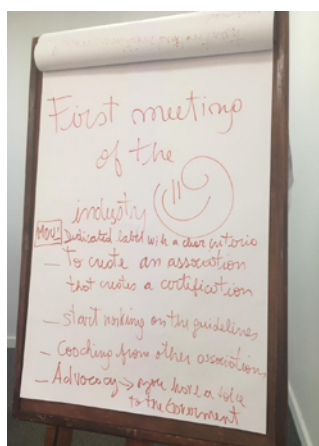 First meeting
of the
industry
MOU: Dedicated label with a clear criteria
— To create an association
that creates a certification
— start working on the guidelines
— Coaching from other associations
— Advocacy → you have a voice
to the Government